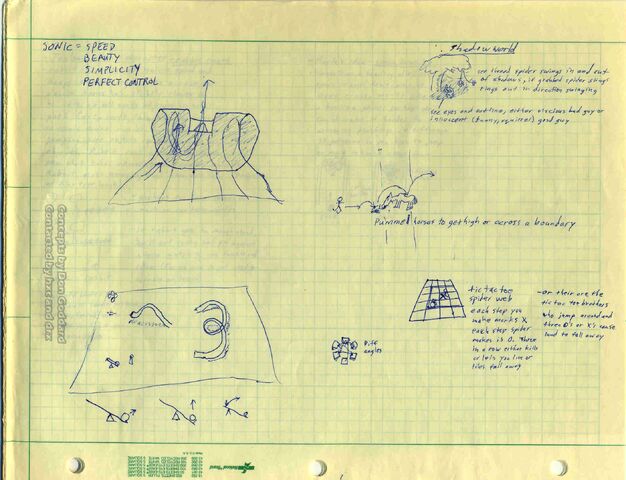 SONIC = SPEED
BEAUTY
SIMPLICITY
PERFECT CONTROL
Shadow World
see thread spider swings in and out
of shadows, if grabbed spider slings
rings out in direction swinging
see eyes and outline, either viscious bad guy or
innocent (bunny, squirrel) good guy
Pummel horses to get high or across a boundary
tic tac toe
spider web
each step you
make marks X
each step spider
makes is O. Three
in a row either kills
or lets you live or
tiles fall away
-or their are the
tic tac toe brothers
who jump around and
three O's or X's cause
land to fall away
Concepts by Don Goddard
Contacted by hxc and drx